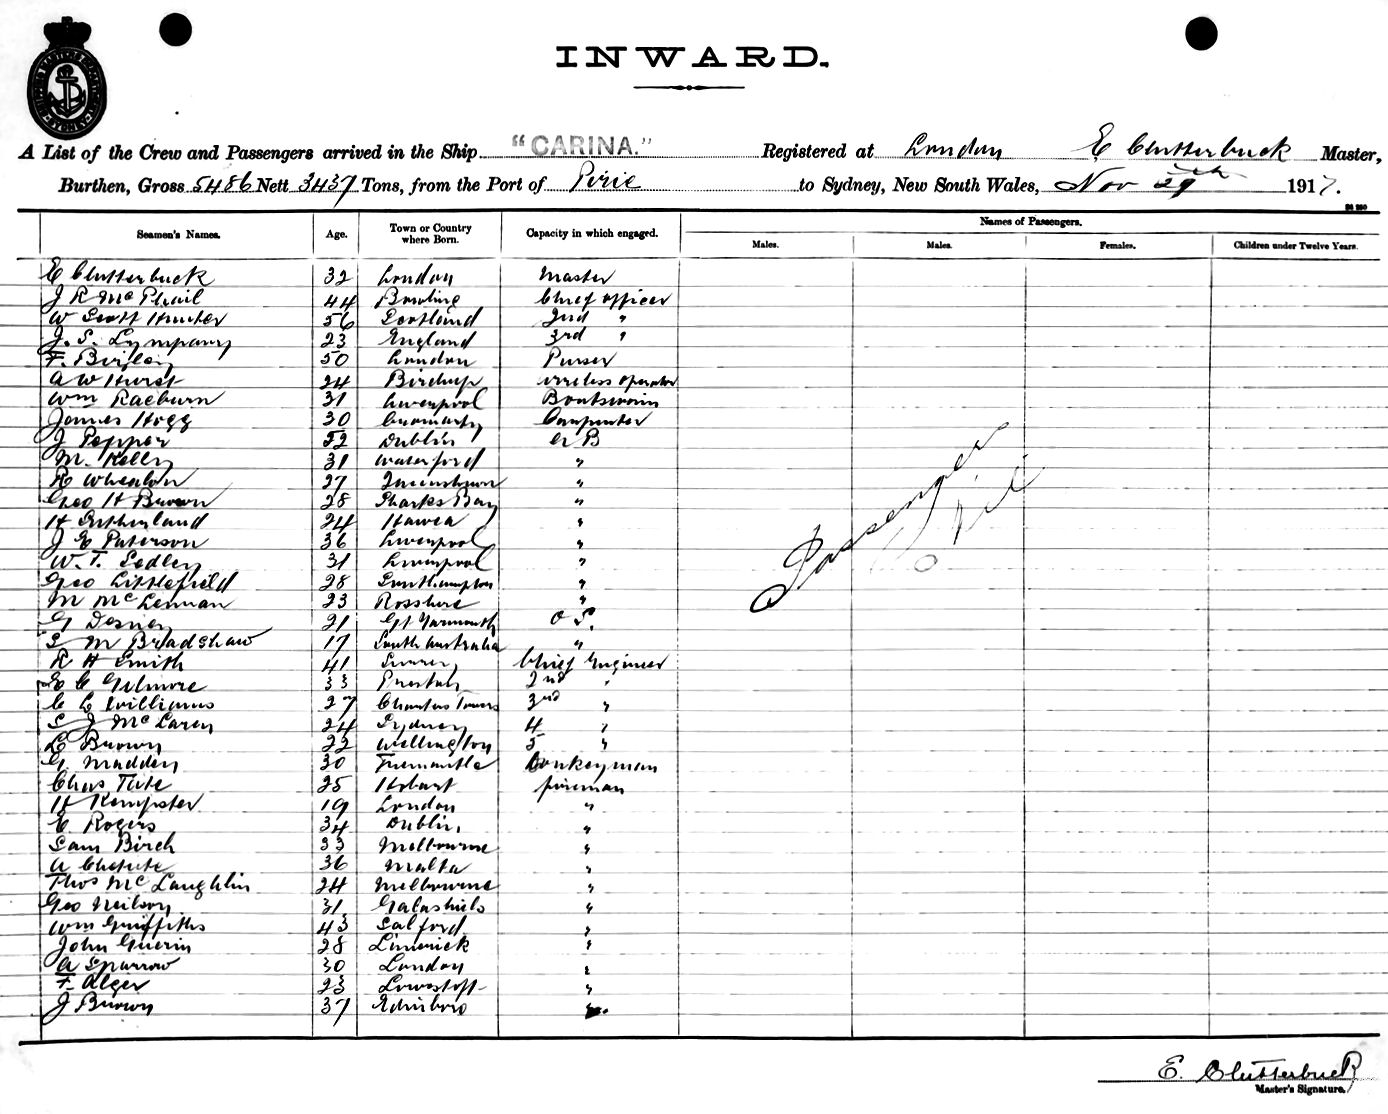 INWARD.
A List of the Crew and Passengers arrived in the Ship "CARINA." Registered at London E Clutterbuck Master,
Burthen, Gross 5486 Nett 3437 Tons, from the Port of Pirie to Sydney, New South Wales, Nov 29th 1917.
Seamen's Names. Age. Town or Country where Born. Capacity in which engaged. Names of Passengers.
Males. Males. Females. Children under Twelve Years.
E Clutterbuck 32 London Master
J R McPhail 44 Bowling Chief officer
W Scott Hunter 56 Scotland 2nd "
J. S. Lympany 23 England 3rd "
F. 50 London Purser
A W Hurst 24 Birchip wireless operator
Wm Raeburn 31 Liverpool Boatswain
James Hogg 30 Cromarty Carpenter
J Pepper 52 Dublin A B
M. Kelly 31 Waterford "
R Whealon 27 Queenstown "
Geo H Brown 28 Sharks Bay "
H Sutherland 24 Hawea "
J E Paterson 36 Liverpool "
W. T. Sedley 31 Liverpool "
Geo Littlefield 28 Southampton "
M McLennan 23 Rosshire "
G 21 Gt Yarmouth O S.
S M Bradshaw 17 South Australia "
R H Smith 41 Surrey Chief Engineer
E C Gilmore 33 Preston 2nd "
C L Williams 27 Charters Towers 3rd "
S J McLaren 24 Sydney 4 "
L Brown 22 Wellington 5 "
G. Madden 30 Fremantle Donkeyman
Chas 25 Hobart fireman
H Kempster 19 London "
E Rogers 34 Dublin. "
Sam Birch 33 Melbourne "
A 36 Malta "
Thos McLaughlin 24 Melbourne "
Geo Neilson 31 Galashiels "
Wm Griffiths 43 Salford "
John Guerin 28 Limerick "
A Sparrow 30 London "
F. Alger 23 Lowestoft "
J Brown 37 Edinboro "
Passenger
Nil
E. Clutterbuck
Master's Signature.